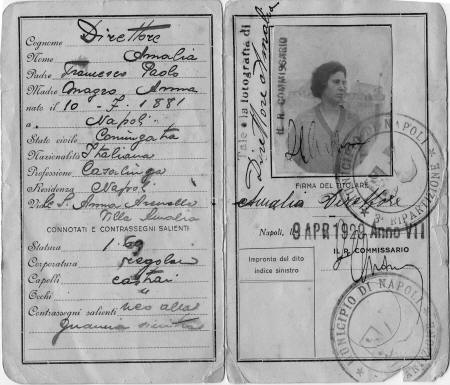 Cognome Direttore
Nome Amalia
Padre Francesco Paolo
Madre Magro Anna
nato il 10 - 7 - 1881
a Napoli
Stato civile Coniugata
Nazionalità Italiana
Professione Casalinga
Residenza Napoli
Via S. Anna Arenella
Villa Amalia
CONNOTATI E CONTRASSEGNI SALIENTI
Statura 1.69
Corporatura regolare
Capelli castani
Occhi "
Contrassegni salienti neo alla
guancia sinistra
Tale è la fotografia di
Direttore Amalia
IL R. COMMISSARIO
FIRMA DEL TITOLARE
Amalia Direttore
Napoli, 9 APR 1929 Anno VII
IL R. COMMISSARIO
Impronta del dito
indice sinistro
MUNICIPIO DI NAPOLI
8ª RIPARTIZIONE
MUNICIPIO DI NAPOLI